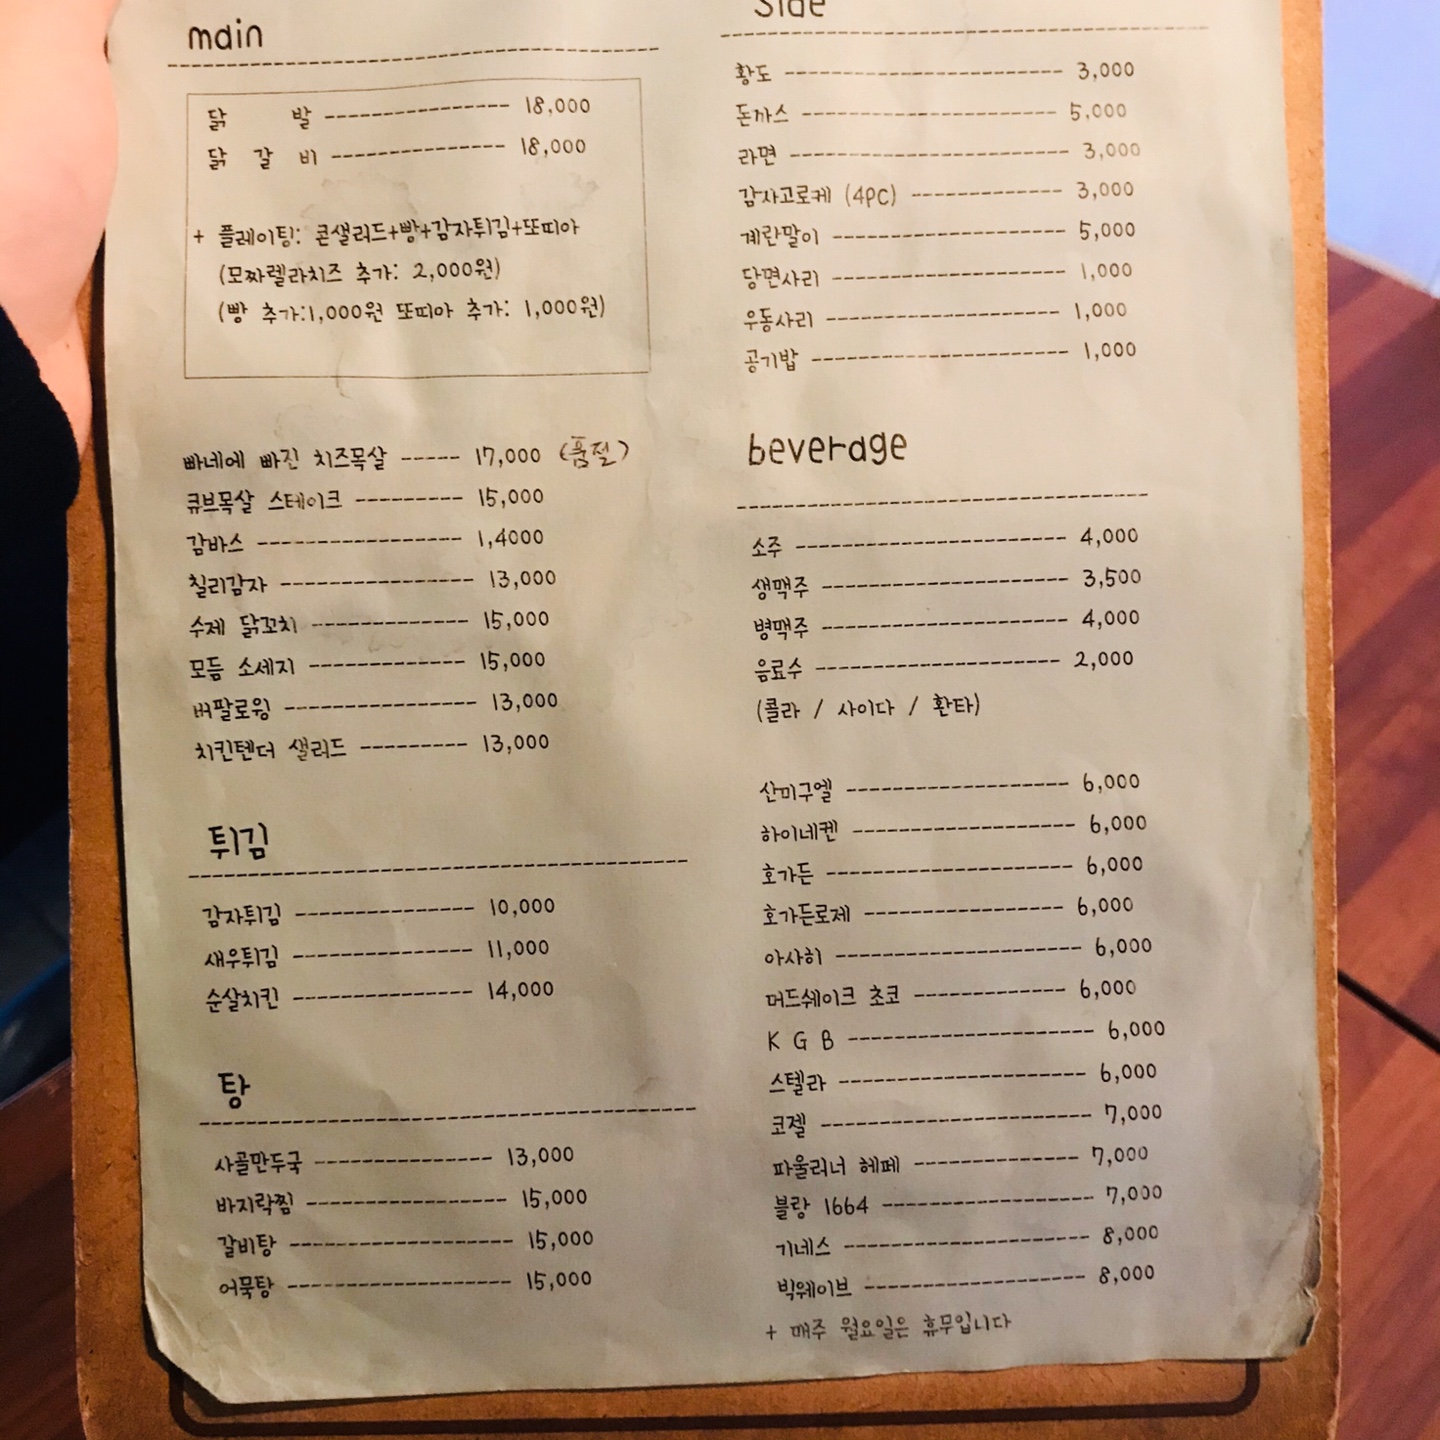 main
닭 발 ---------------- 18,000
닭 갈 비 --------------- 18,000
+ 플레이팅: 콘샐러드+빵+감자튀김+또띠아
(모짜렐라치즈 추가: 2,000원)
(빵 추가:1,000원 또띠아 추가: 1,000원)
빠네에 빠진 치즈목살 ----- 17,000 (품절)
큐브목살 스테이크 --------- 15,000
감바스 ----------------- 1,4000
칠리감자 ---------------- 13,000
수제 닭꼬치 ------------- 15,000
모듬 소세지 ------------- 15,000
버팔로윙 ---------------- 13,000
치킨텐더 샐러드 --------- 13,000
튀김
감자튀김 --------------- 10,000
새우튀김 --------------- 11,000
순살치킨 --------------- 14,000
탕
사골만두국 --------------- 13,000
바지락찜 ---------------- 15,000
갈비탕 ------------------ 15,000
어묵탕 ------------------ 15,000
Side
황도 ----------------------- 3,000
돈까스 --------------------- 5,000
라면 ----------------------- 3,000
감사고로케 (4PC) ------------ 3,000
계란말이 ------------------- 5,000
당면사리 ------------------- 1,000
우동사리 ------------------- 1,000
공기밥 --------------------- 1,000
beverage
소주 ---------------------- 4,000
생맥주 -------------------- 3,500
병맥주 -------------------- 4,000
음료수 -------------------- 2,000
(콜라 / 사이다 / 환타)
산미구엘 ------------------ 6,000
하이네켄 ------------------ 6,000
호가든 -------------------- 6,000
호가든로제 ---------------- 6,000
아사히 -------------------- 6,000
머드쉐이크 초코 ------------ 6,000
K G B -------------------- 6,000
스텔라 -------------------- 6,000
코젤 ---------------------- 7,000
파울러너 헤페 ------------- 7,000
블랑 1664 ----------------- 7,000
기네스 -------------------- 8,000
빅웨이브 ------------------ 8,000
+ 매주 월요일은 휴무입니다